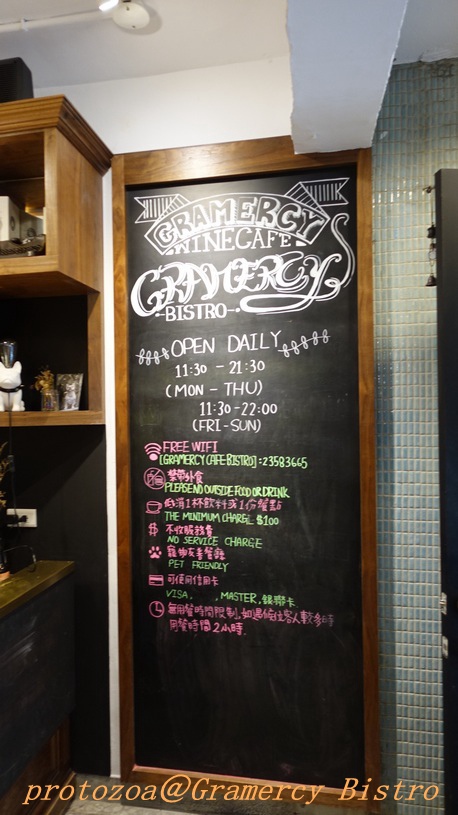 GRAMERCY
WINE CAFE
GRAMERCY
BISTRO
OPEN DAILY
11:30 - 21:30
(MON - THU)
11:30-22:00
(FRI-SUN)
FREE WIFI
[GRAMERCY CAFE BISTRO]:23583665
禁帶外食
PLEASE NO OUTSIDE FOOD OR DRINK
低消1杯飲料或1份餐點
THE MINIMUM CHARGE $100
$ 不收服務費
NO SERVICE CHARGE
寵物友善餐廳
PET FRIENDLY
可使用信用卡
VISA, , MASTER, 銀聯卡
無用餐時間限制,如遇候位客人較多時
用餐時間2小時.
protozoa@Gramercy Bistro